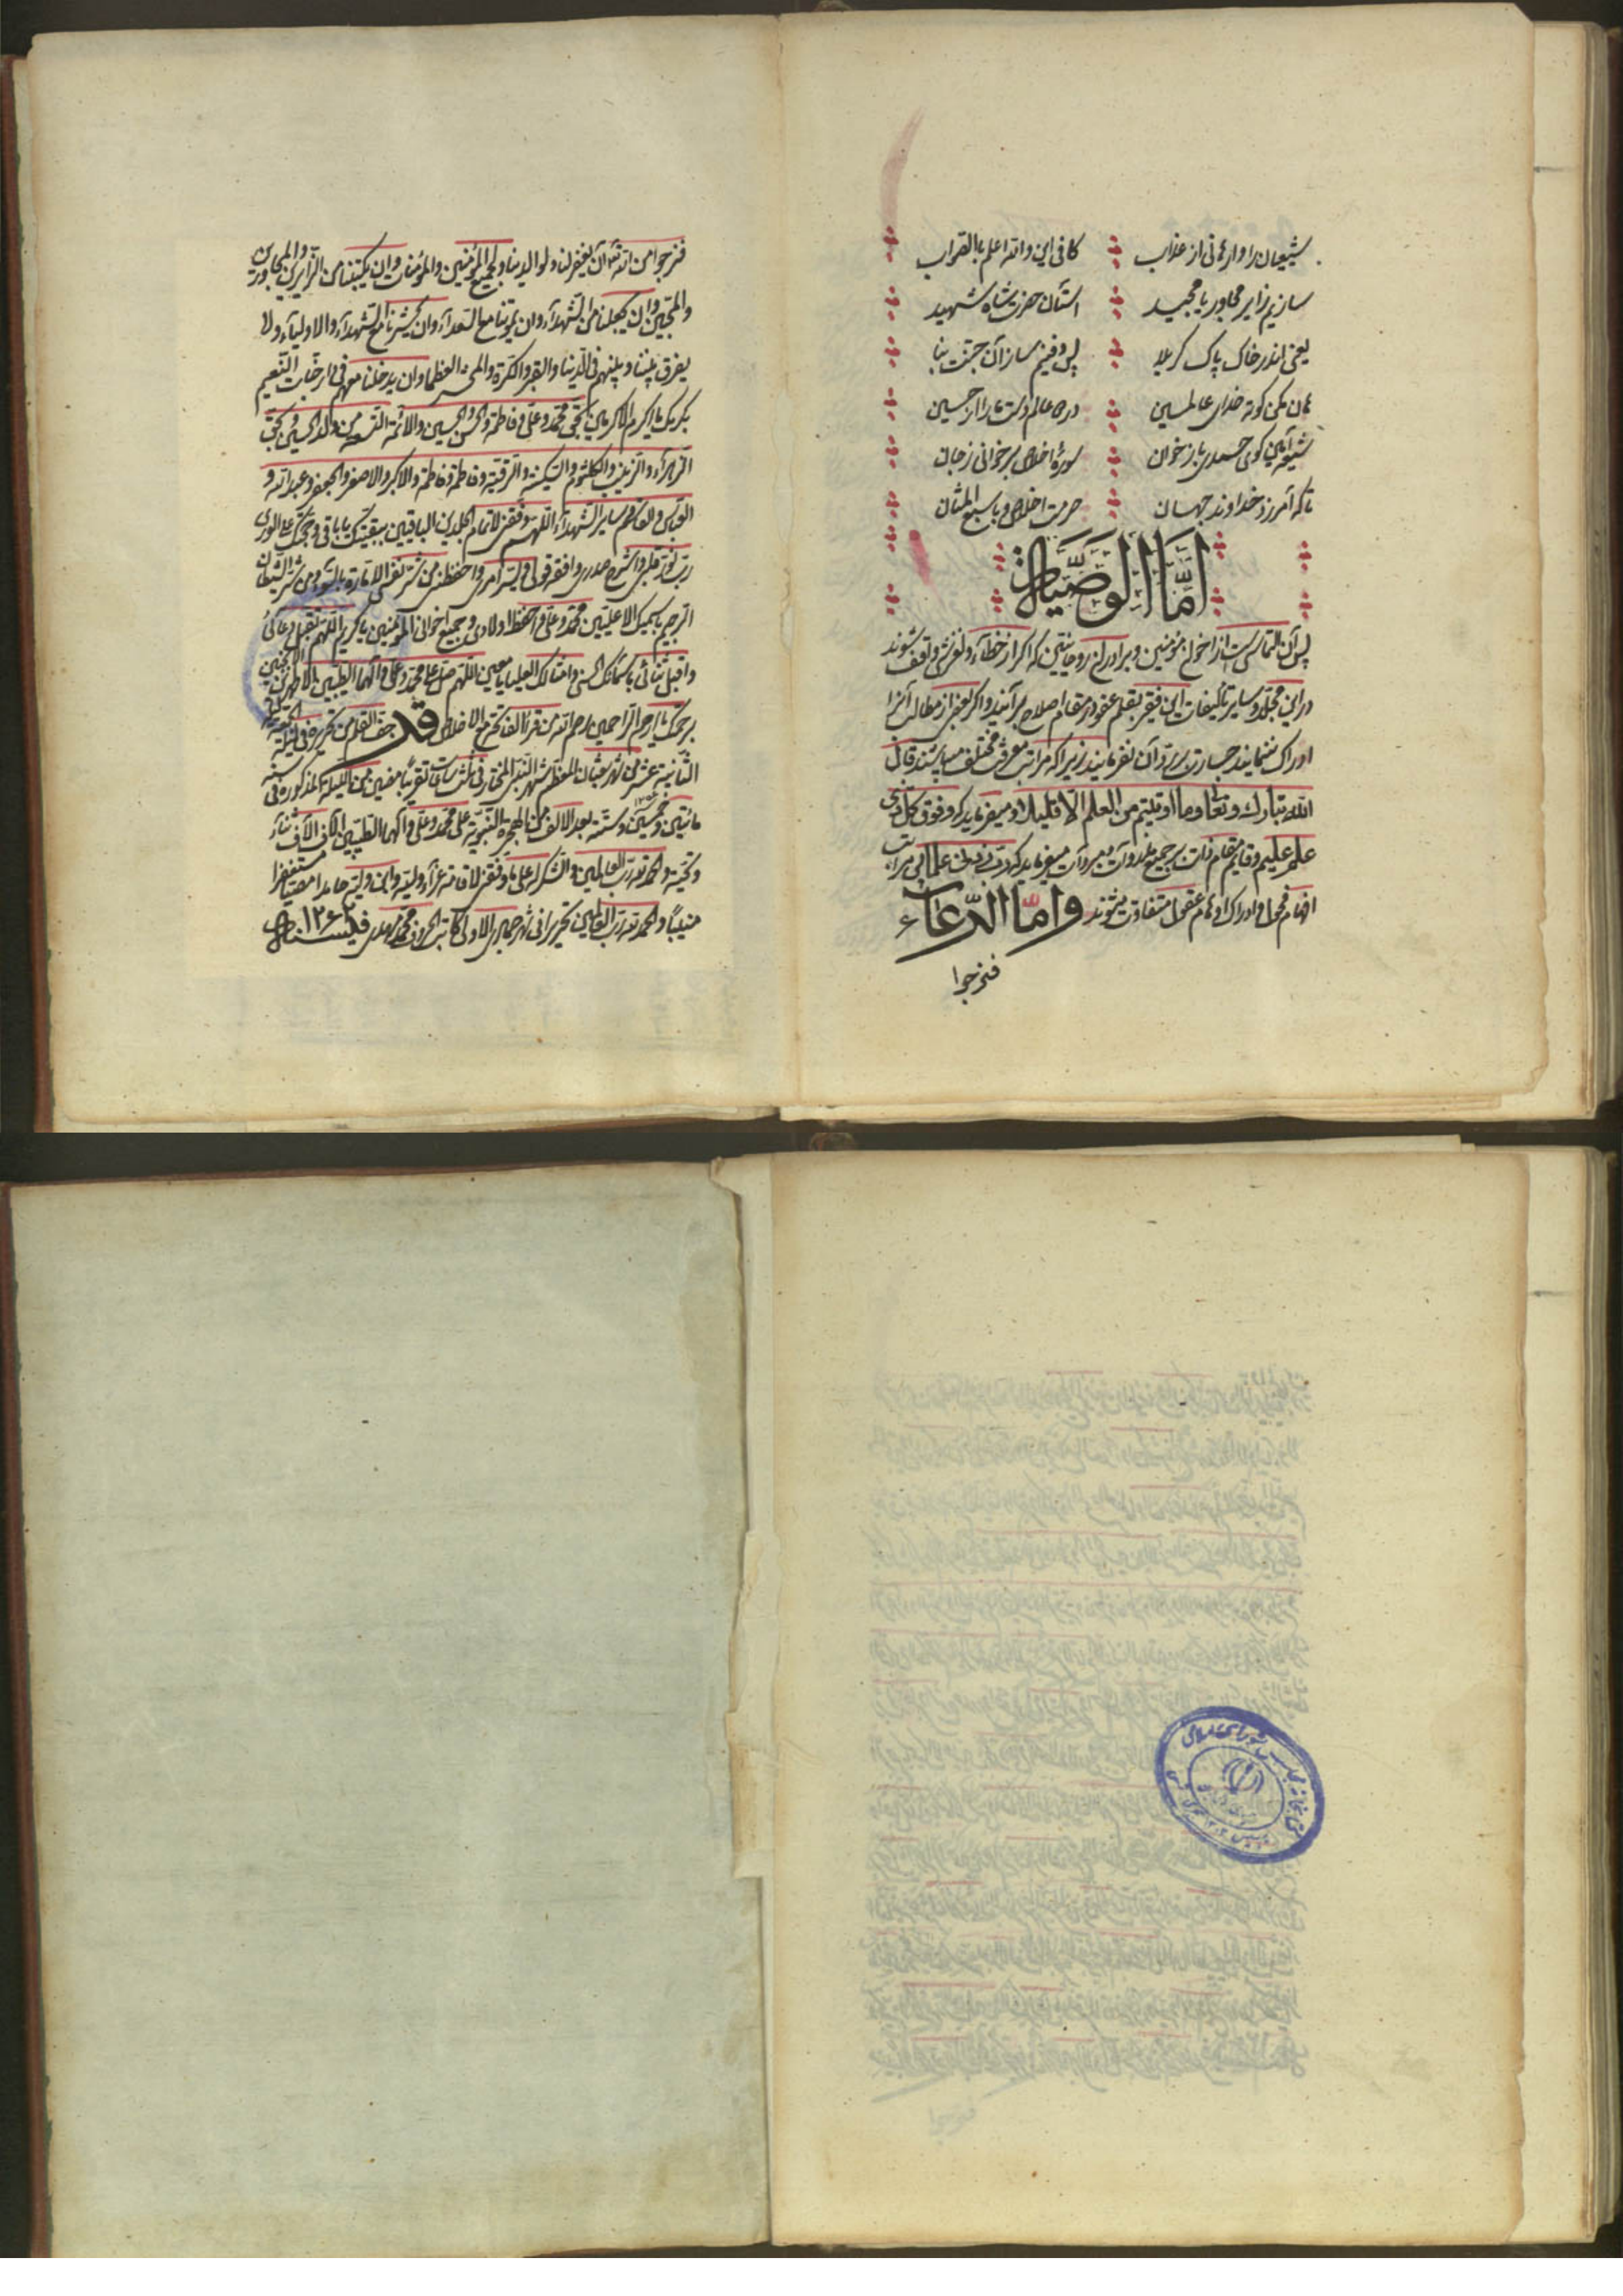 شیعیان را وارهانی از عذاب کافی این والله اعلم بالصواب
سازیم زایر مجاور یا مجید آستان حضرت شاه شهید
یعنی اندر خاک پاک کربلا پس دفینم ساز آن جنت بنا
در دو عالم دست ما را از حسین
شیعه آمین گوی حمدی باز خوان سورهٔ اخلاص برخوانی ز جان
تا که آمرزد خداوند جهان حرمت اخلاص و با سبع المثان
امّا الوصیّة
پس آن التماس است از اخوان مؤمنین و برادران روحانیین که اگر از خطاء و لغزش واقف شوند
در این مجلد و سایر تألیفات این فقیر بقلم عفو در مقام اصلاح برآیند و اگر بعضی از مطالب آنرا
ادراک ننمایند جسارت بر رد آن نفرمایند زیرا که مراتب معرفت مختلف میباشند قال
الله تبارک وتعالی وما اوتیتم من العلم الا قلیلا و میفرماید که وفوق کل ذی
علم علیم و قایم مقام ذات میفرماید که رب زدنی علما پس مراتب
افهام فحول و ادراک و اوهام عقول متفاوت میشوند وامّا الدّعاء
فنرجوا
فنرجوا من الله ان یغفر لنا ولوالدینا ولجمیع المؤمنین والمؤمنات وان یکتبنا من الزایرین والمجاورین
والمحبین وان یجعلنا من الشهداء وان یمیتنا مع السعداء وان یحشرنا مع الشهداء والاولیاء ولا
یفرق بیننا وبینهم فی الدنیا والقبر والکرة والعظما وان یدخلنا معهم فی جنات النعیم
بکرمک یا اکرم الاکرمین بحق محمد وعلی وفاطمة والحسن والحسین والائمة التسعة من ولد الحسین وبحق
الزهراء والزینب والکلثوم والسکینة والرقیة وفاطمة وفاطمة والاکبر والاصغر والجعفر وعبدالله و
العباس والقاسم وسایر الشهداء اللهم وفقنی لاتمام
رب نور قلبی واشرح صدری ویسر امری واحفظنی من شر نفس الامارة بالسوء ومن شر الشیطان
الرجیم محمد وعلی واحفظ اولادی وجمیع اخوانی المؤمنین یا کریم اللهم تقبل دعائی
واقبل ثنائی باسمائک الحسنی وامثالک العلیا یا معین اللهم صل علی محمد وعلی وآلهما الطیبین الاطهرین
برحمتک یا ارحم الراحمین رحم الله من قرء الفاتحة مع الاخلاص قد جف القلم من تحریره فی لیلة
الثانیة عشر من شهر شعبان المعظم شهر النبی المختار فی ثلث ساعات تقریبا من اللیلة المذکورة فی سنة
مأتین وخمسین وستة بعد الالف من الهجرة النبویة علی محمد وعلی وآلهما الطیبین آلاف ثناء
وتحیة والحمد لله رب العالمین والشکر له علی ما وفقنی
منیبا والحمد لله رب العالمین تحریرا فی شهر جمادی الاولی کاتب الحروف محمد مهدی فی سنة ۱۲۶۲
کتابخانه مجلس شورای اسلامی